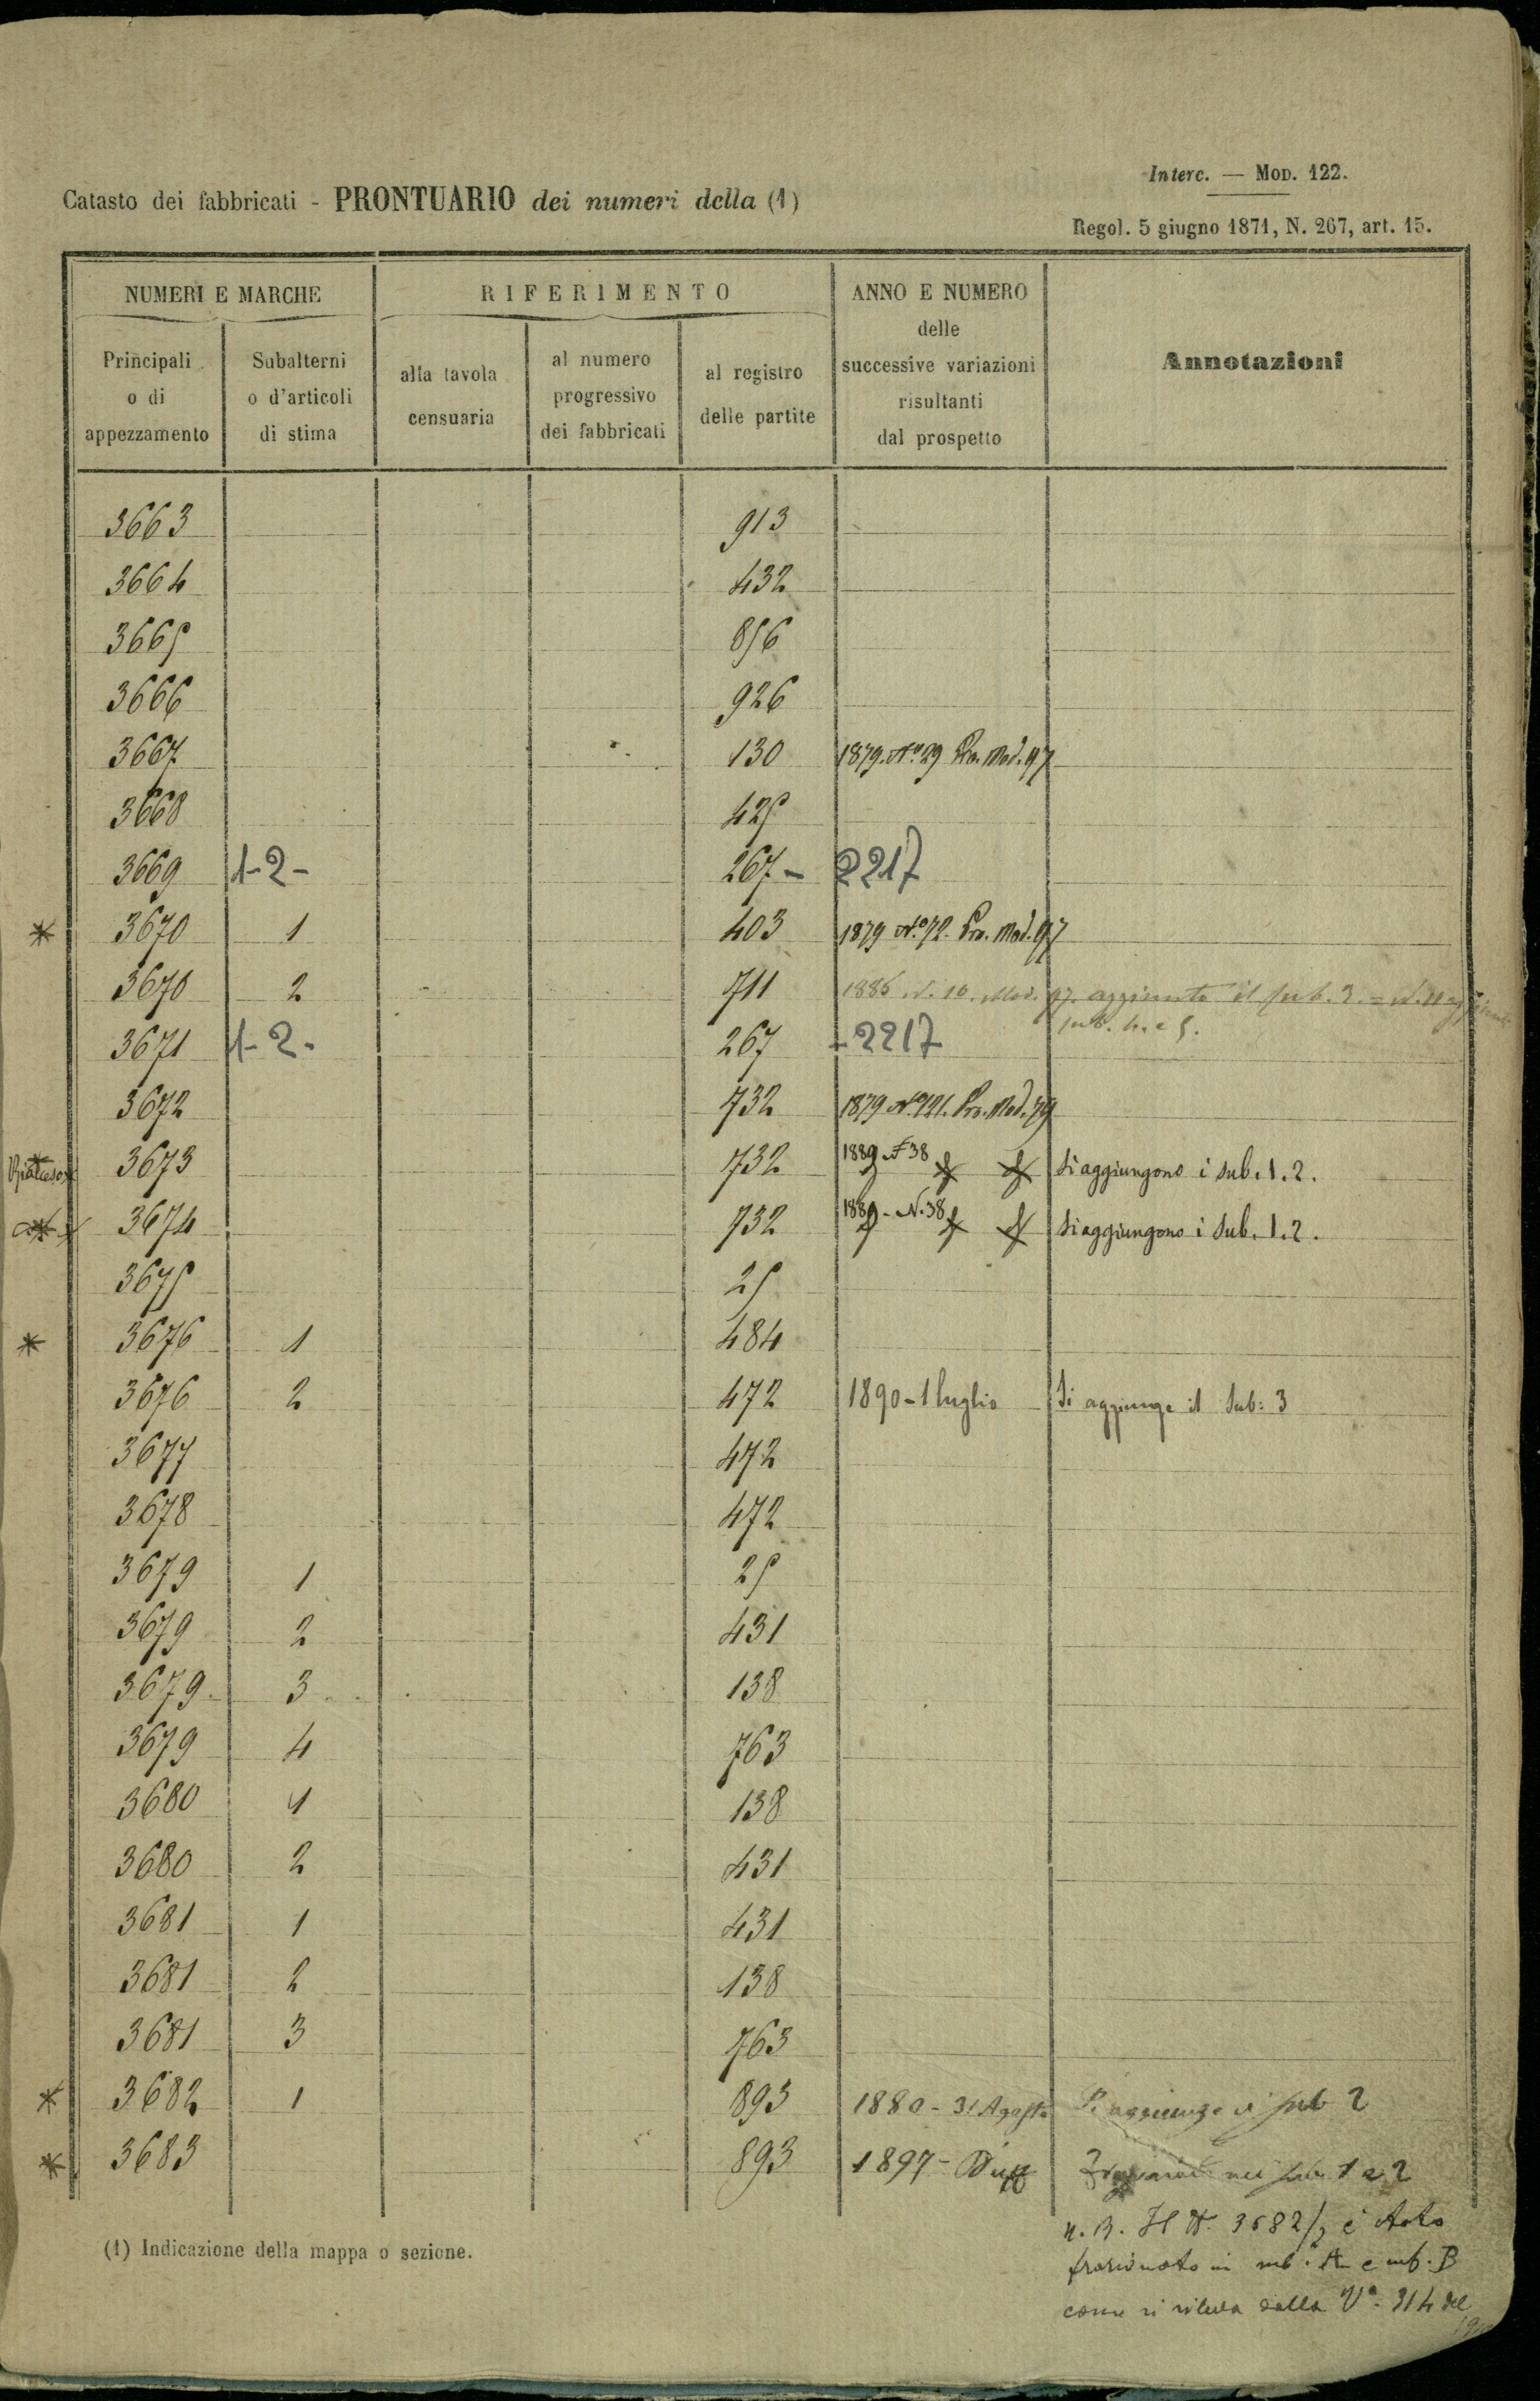 Interc. — MOD. 122.
Catasto dei fabbricati - PRONTUARIO dei numeri della (1)
Regol. 5 giugno 1871, N. 267, art. 15.
NUMERI E MARCHE
RIFERIMENTO
ANNO E NUMERO
delle
successive variazioni
risultanti
dal prospetto
Annotazioni
Principali
o di
appezzamento
Subalterni
o d'articoli
di stima
alla tavola
censuaria
al numero
progressivo
dei fabbricati
al registro
delle partite
3663 913
3664 432
3665 856
3666 926
3667 130 1879. N° 29 Pro. Mod. 97
3668 425
3669 1-2- 267- 2217
* 3670 1 403 1879 N° 72. Pro. Mod. 97
3670 2 711 1886 N. 10. Mod. 97. aggiunto il sub. 3. = N. 11
sub. 4. e 5.
3671 1-2- 267 -2217
3672 732 1879 N° 121. Pro. Mod. 79
3673 732 1889 N 38 Si aggiungono i sub. 1. 2.
3674 732 1889 - N. 38 Si aggiungono i sub. 1. 2.
3675 25
* 3676 1 484
3676 2 472 1890 - 1 luglio Si aggiunge il Sub: 3
3677 472
3678 472
3679 1 25
3679 2 431
3679 3 138
3679 4 763
3680 1 138
3680 2 431
3681 1 431
3681 2 138
3681 3 763
* 3682 1 893 1880 - 31 Agosto Si aggiunge il sub 2
* 3683 893 1897 - nei sub. 1 e 2
N. B. Il N. 3682/2 è stato
frazionato in sub. A e sub. B
come si rileva dalla Va. 314 del
(1) Indicazione della mappa o sezione.